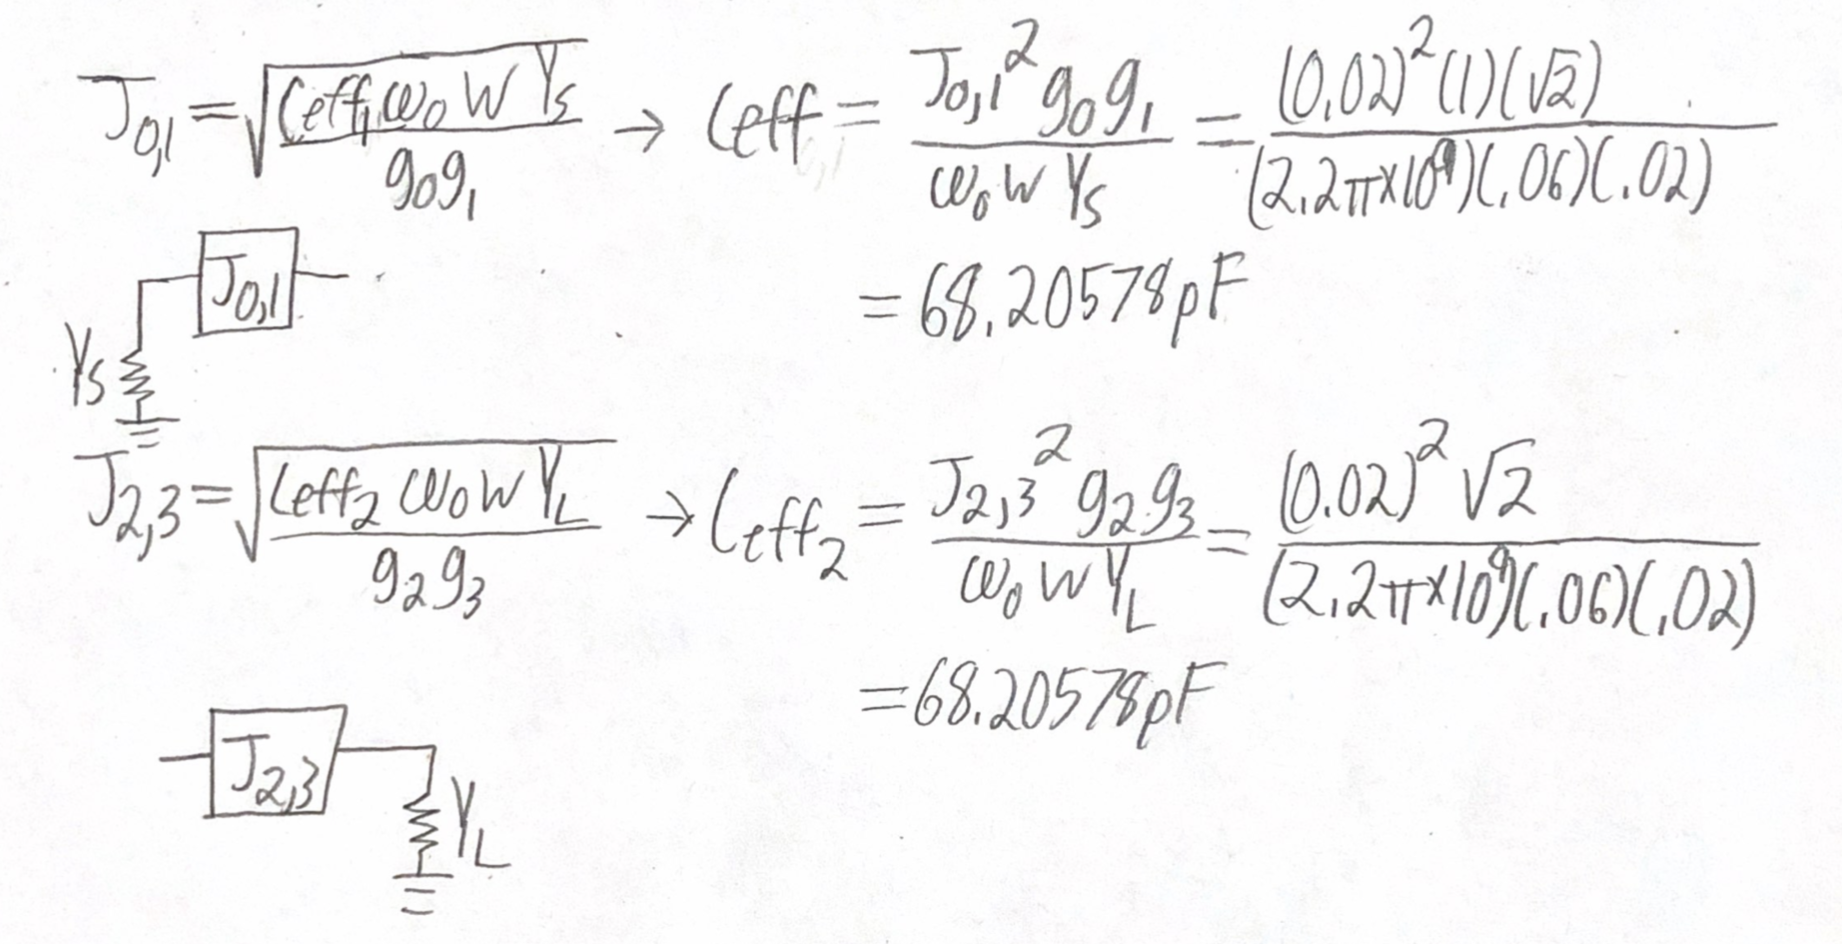 J₀,₁ = √(Ceff₁ ω₀ W Yₛ / g₀g₁) → Ceff = J₀,₁² g₀g₁ / ω₀ W Yₛ = (0.02)² (1)(√2) / (2.2π×10⁹)(.06)(.02)
J₀,₁
= 68.20578pF
Yₛ
J₂,₃ = √(Ceff₂ ω₀ W Y_L / g₂g₃) → Ceff₂ = J₂,₃² g₂g₃ / ω₀ W Y_L = (0.02)² √2 / (2.2π×10⁹)(.06)(.02)
= 68.20578pF
J₂,₃
Y_L